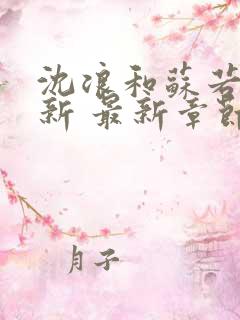 沈浪和蘇若
新 最新章節
月子